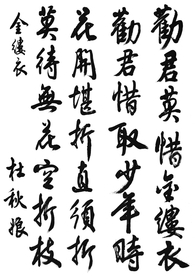 勸君莫惜金縷衣
勸君惜取少年時
花開堪折直須折
莫待無花空折枝
金縷衣
杜秋娘